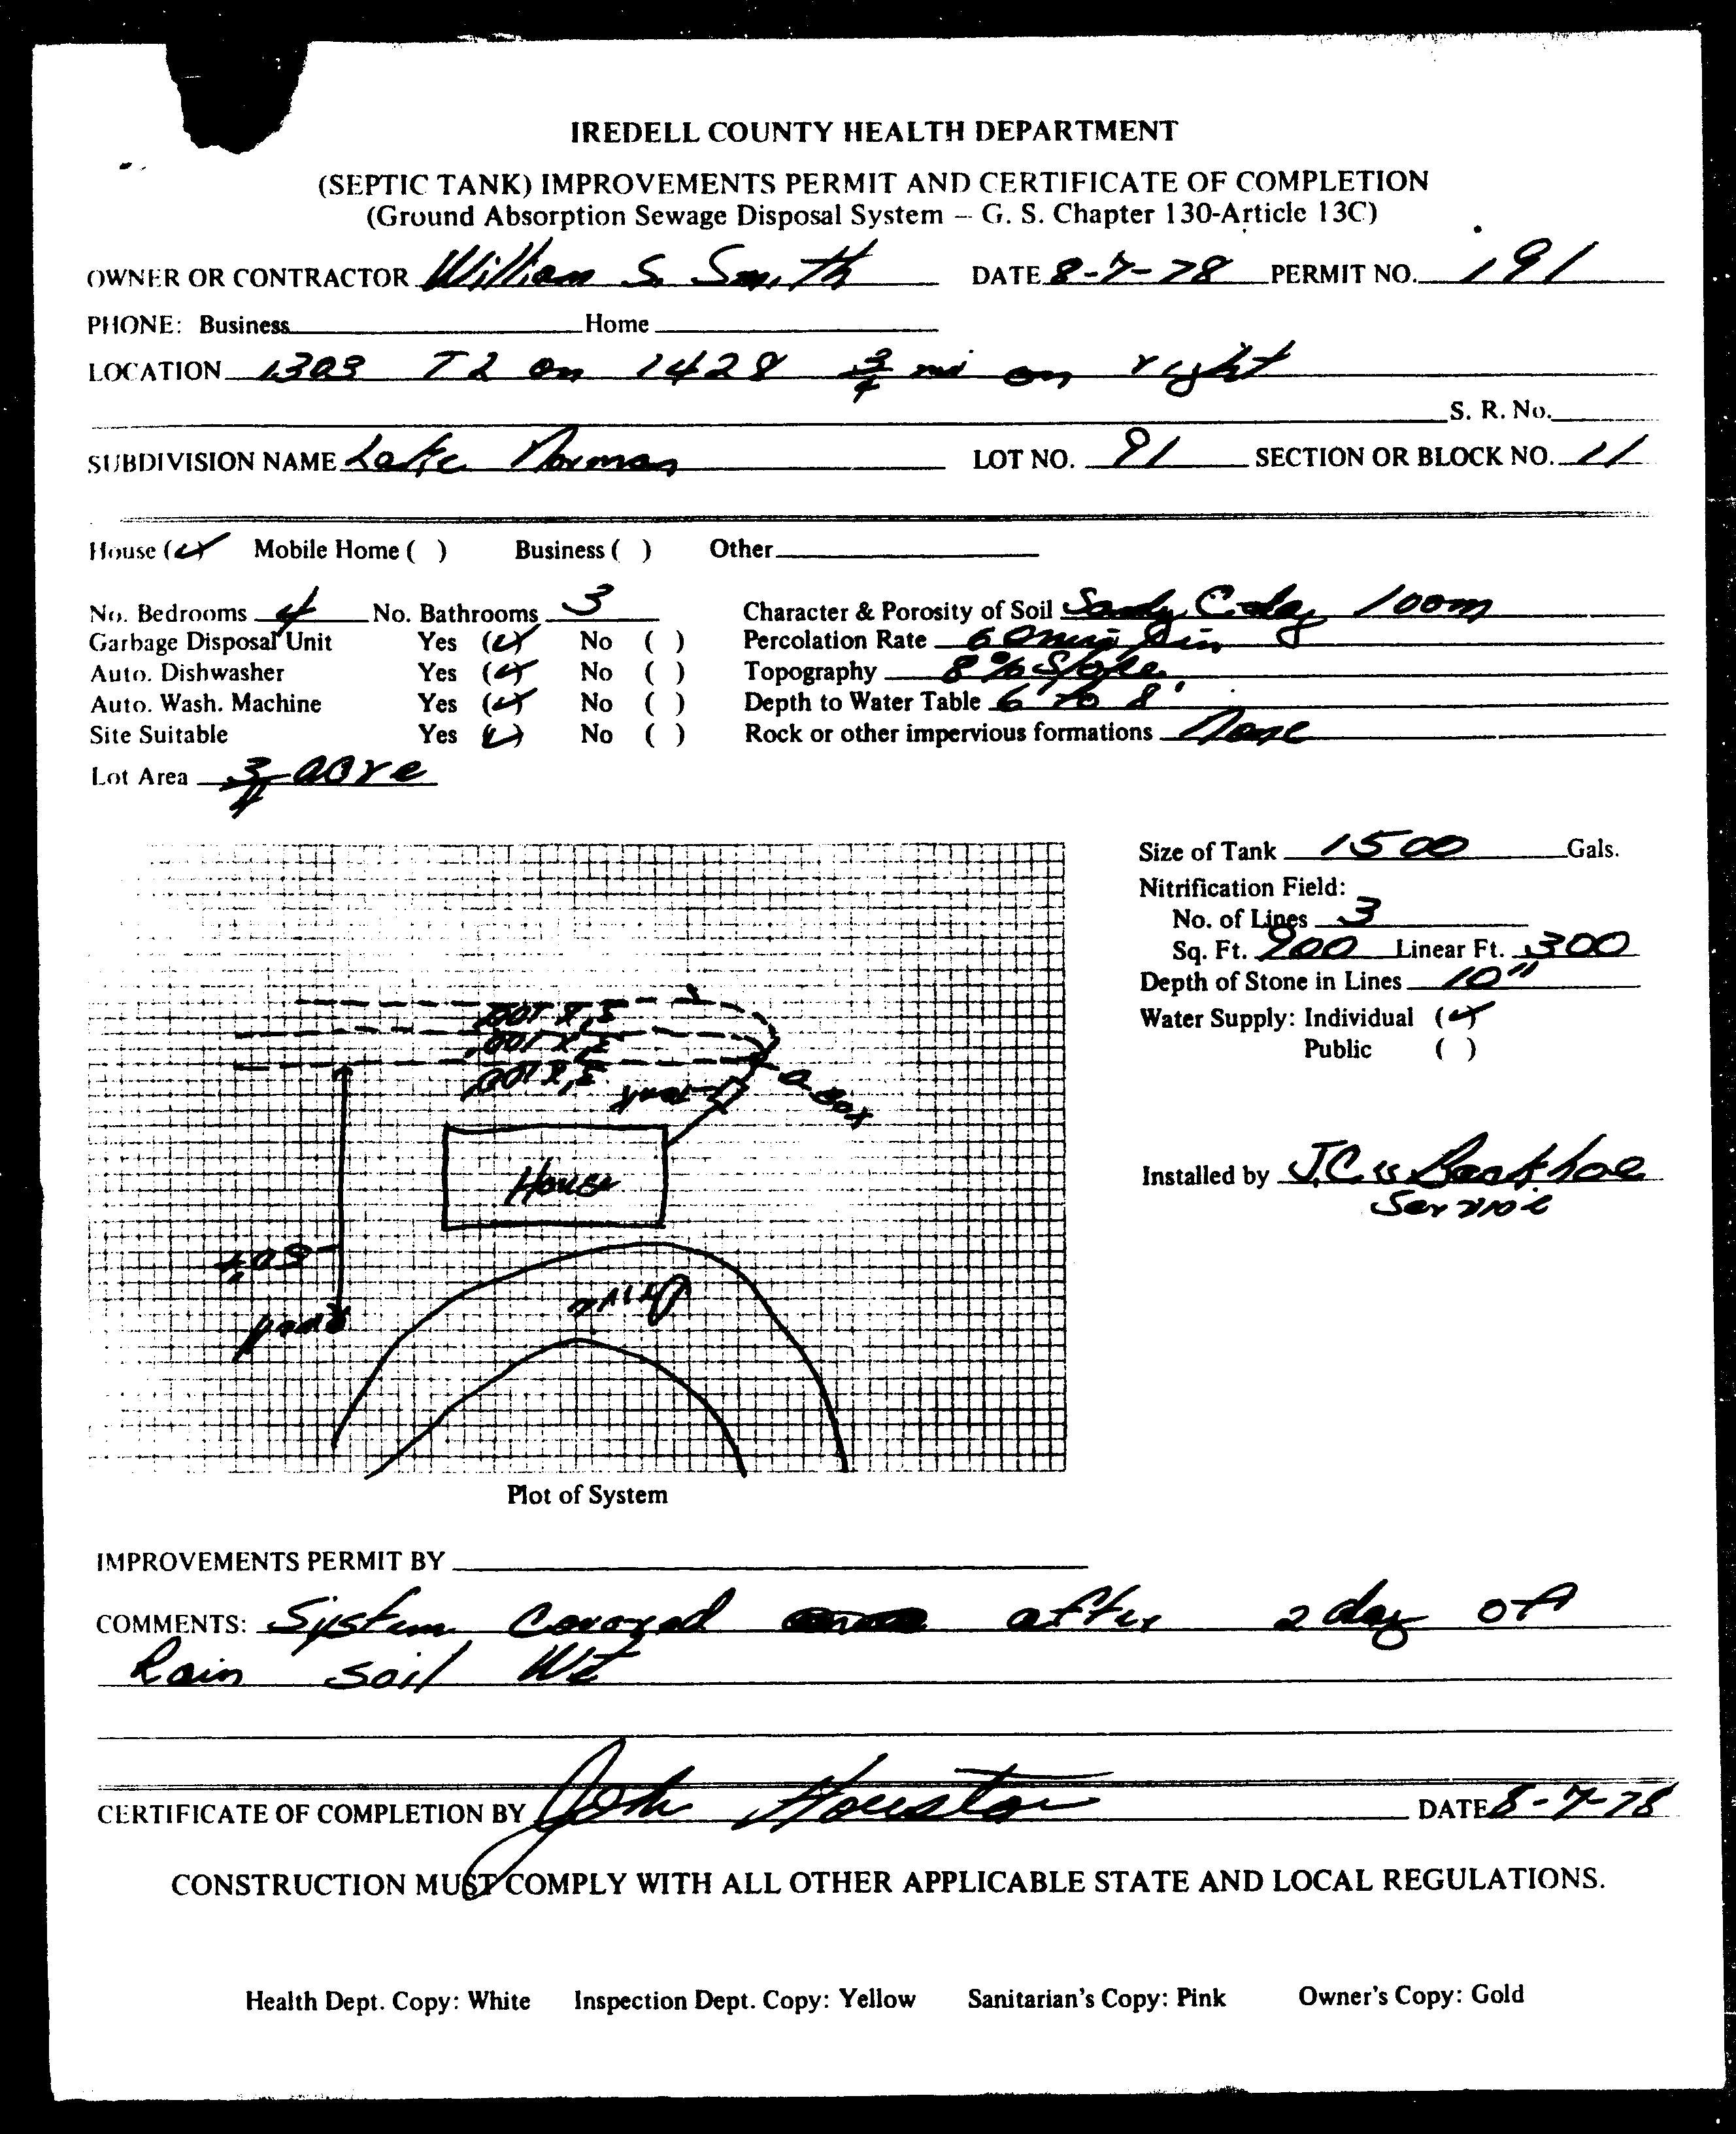 IREDELL COUNTY HEALTH DEPARTMENT
(SEPTIC TANK) IMPROVEMENTS PERMIT AND CERTIFICATE OF COMPLETION
(Ground Absorption Sewage Disposal System – G. S. Chapter 130-Article 13C)
OWNER OR CONTRACTOR William S. Smith DATE 8-7-78 PERMIT NO. 191
PHONE: Business Home
LOCATION 1303 T2 on 1428 3/4 mi on right
S. R. No.
SUBDIVISION NAME Lake Norman LOT NO. 91 SECTION OR BLOCK NO. 11
House (✓) Mobile Home ( ) Business ( ) Other
No. Bedrooms 4 No. Bathrooms 3 Character & Porosity of Soil Sandy Clay loom
Garbage Disposal Unit Yes (✓) No ( ) Percolation Rate 60 min
Auto. Dishwasher Yes (✓) No ( ) Topography 8% Slope
Auto. Wash. Machine Yes (✓) No ( ) Depth to Water Table 6' to 8'
Site Suitable Yes (✓) No ( ) Rock or other impervious formations None
Lot Area 3/4 acre
Size of Tank 1500 Gals.
Nitrification Field:
No. of Lines 3
Sq. Ft. 900 Linear Ft. 300
Depth of Stone in Lines 10"
Water Supply: Individual (✓)
Public ( )
3' x 100'
3' x 100'
3' x 100'
Tank
D Box
House
Drive
Installed by J.C.'s Backhoe
Service
Plot of System
IMPROVEMENTS PERMIT BY
COMMENTS: System Covered after 2 day of
Rain soil Wet
CERTIFICATE OF COMPLETION BY John Houston DATE 8-7-78
CONSTRUCTION MUST COMPLY WITH ALL OTHER APPLICABLE STATE AND LOCAL REGULATIONS.
Health Dept. Copy: White Inspection Dept. Copy: Yellow Sanitarian's Copy: Pink Owner's Copy: Gold